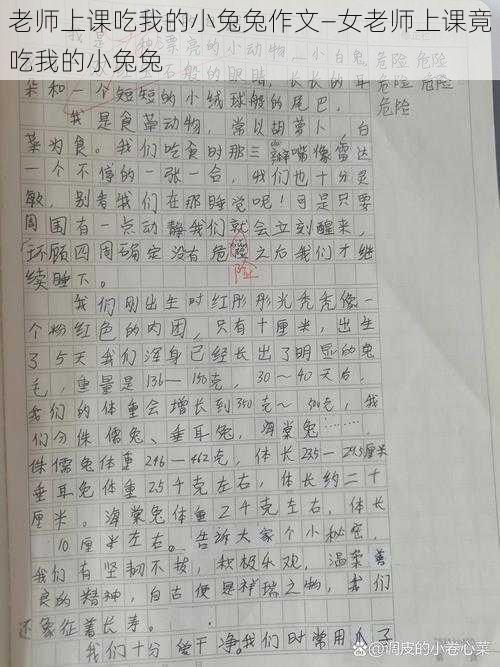 老师上课吃我的小兔兔作文—女老师上课竟
吃我的小兔兔
我是一种漂亮的小动物—小白兔
危险 危险
宝石般的眼睛，长长的耳
危险 危险
朵和一个短短的小绒球般的尾巴。
危险
我是食草动物，常以胡萝卜，白
菜为食。我们吃食时那三瓣嘴像雷达
一个不停的一张一合，我们也十分灵
敏，别看我们在那睡觉呢！可是只要
周围有一点动静我们就会立刻醒来，
环顾四周确定没有危险之后我们才继
险
续睡下。
我们刚出生时红彤彤光秃秃像一
个粉红色的肉团，只有十厘米，出生
了5天我们浑身已经长出了明显的兔
毛，重量是136—150克，30—40天后，
我们的体重会增长到350克—500克，我
们分侏儒兔、垂耳兔，海棠兔……
侏儒兔体重246—462克，体长235—245厘米
垂耳兔体重25千克左右，体长约二十
厘米。海棠兔体重2千克左右，体长
10厘米左右。告诉大家个小秘密，
我们有坚韧不拔，积极乐观，温柔善
良的精神，自古便是祥瑞之物，我们
还象征着长寿。
我们十分爱干净。我们时常用爪子
头条 @调皮的小卷心菜